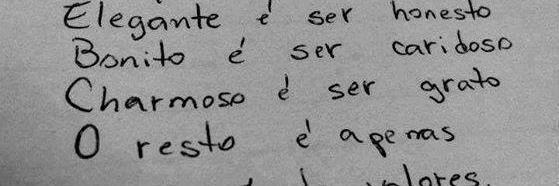 Elegante é ser honesto
Bonito é ser caridoso
Charmoso é ser grato
O resto é apenas
valores.